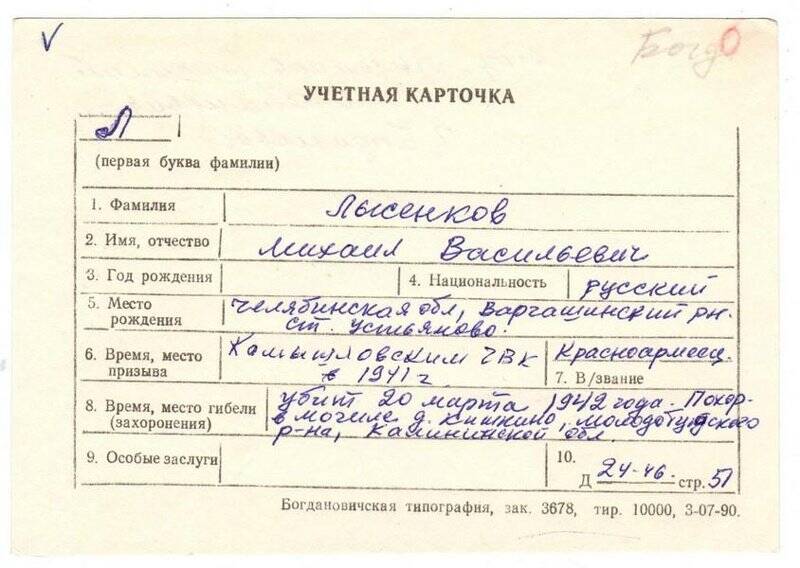 V
Богд О
УЧЕТНАЯ КАРТОЧКА
Л
(первая буква фамилии)
1. Фамилия Лысенков
2. Имя, отчество Михаил Васильевич
3. Год рождения 4. Национальность русский
5. Место рождения Челябинская обл, Варгашинский рн.
ст. Устьяново.
6. Время, место призыва Камышловским ГВК
в 1941 г
Красноармеец.
7. В/звание
8. Время, место гибели (захоронения) убит 20 марта 1942 года. Похор.
в могиле д. Кишкино, Молодотудского
р-на, Калининской обл.
9. Особые заслуги
10.
Д 24-46 стр. 51
Богдановичская типография, зак. 3678, тир. 10000, 3-07-90.